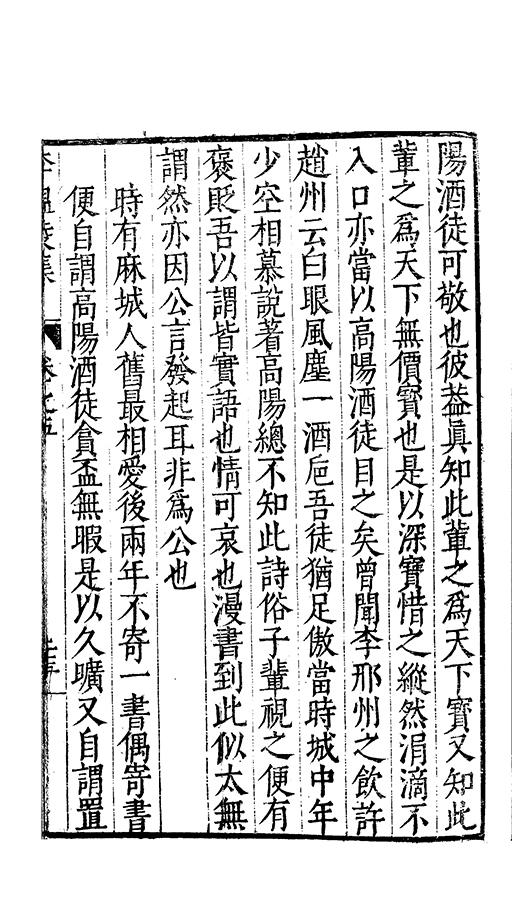 陽酒徒可敬也彼葢真知此輩之爲天下寶又知此
輩之爲天下無價寶也是以深寶惜之縱然涓滴不
入口亦當以高陽酒徒目之矣曾聞李邢州之飲許
趙州云白眼風塵一酒巵吾徒猶足傲當時城中年
少空相慕說著高陽總不知此詩俗子輩視之便有
褒貶吾以謂皆實語也情可哀也漫書到此似太無
謂然亦因公言發起耳非爲公也
時有麻城人舊最相愛後兩年不寄一書偶寄書
便自謂高陽酒徒貪盃無暇是以久曠又自謂置
李溫陵集
卷之五